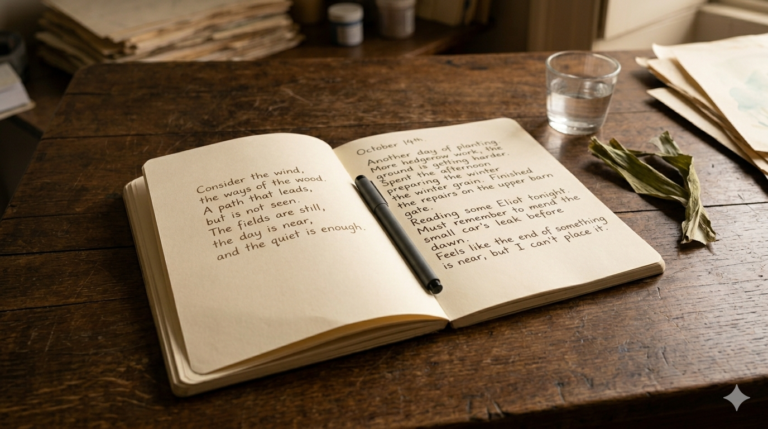 Consider the wind,
the ways of the wood.
A path that leads,
but is not seen.
The fields are still,
the day is near,
and the quiet is enough.
October 14th
Another day of planting
More hedgerow work, the
ground is getting harder.
Spent the afternoon
preparing the winter
the winter grain. Finished
the repairs on the upper barn
gate.
Reading some Eliot tonight.
Must remember to mend the
small car's leak before
dawn.
Feels like the end of something
is near, but I can't place it.